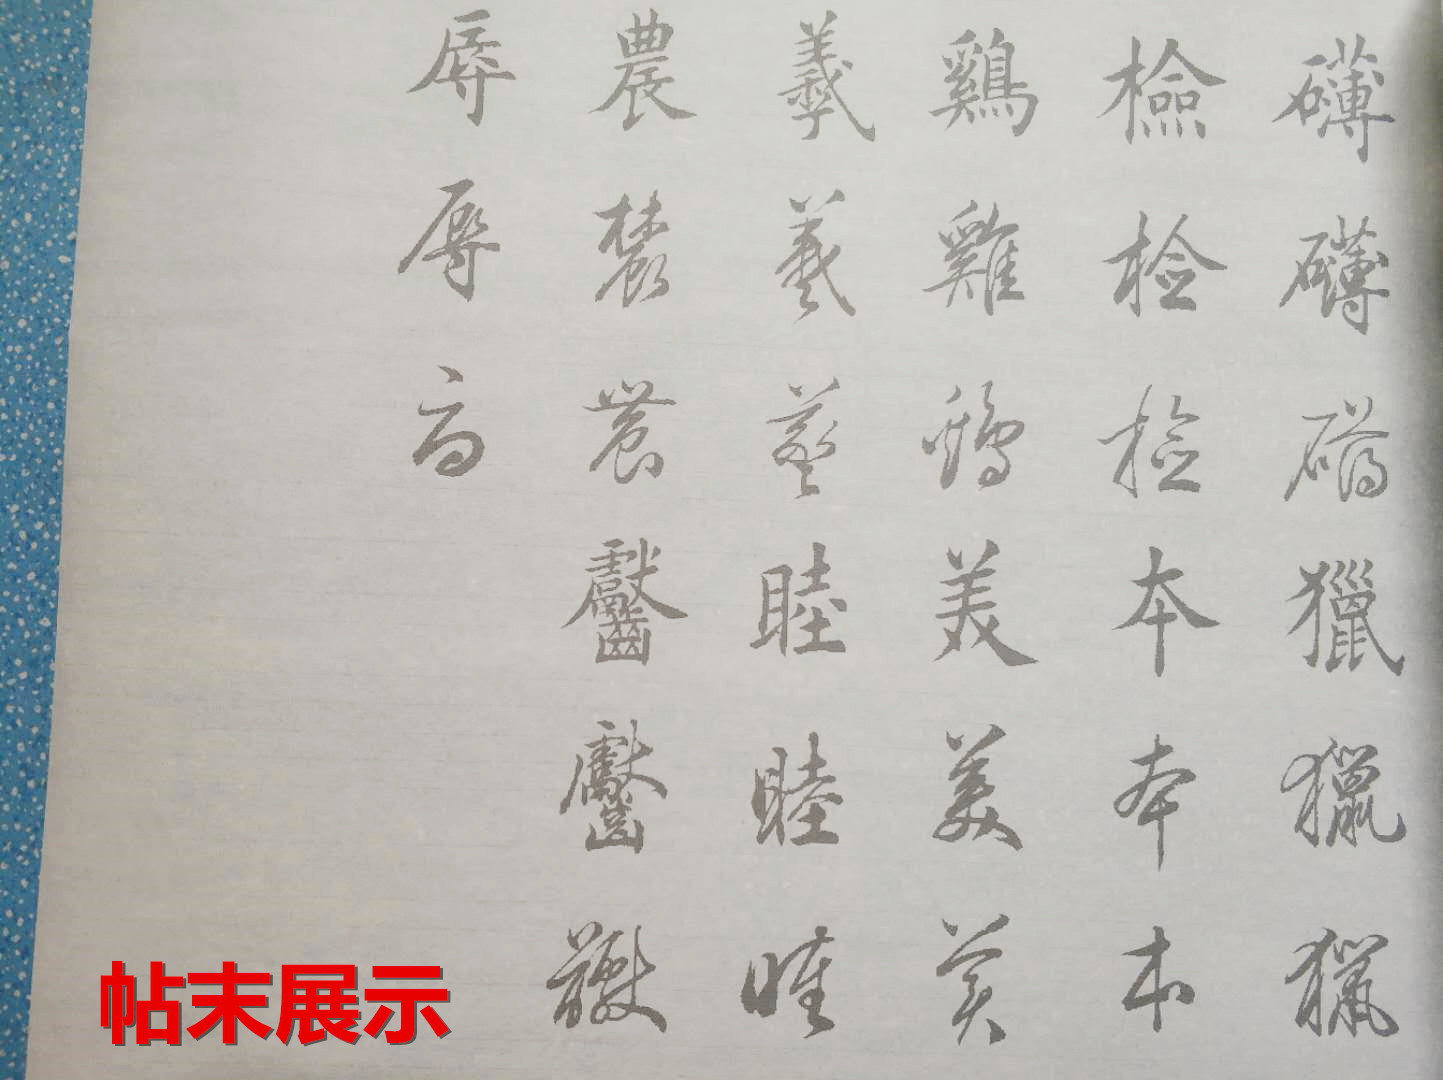 礴礴礴獵獵獵
檢檢檢本本本
鷄雞鷄美美美
羲羲羲睦睦睦
農農農
辱辱辱
帖末展示